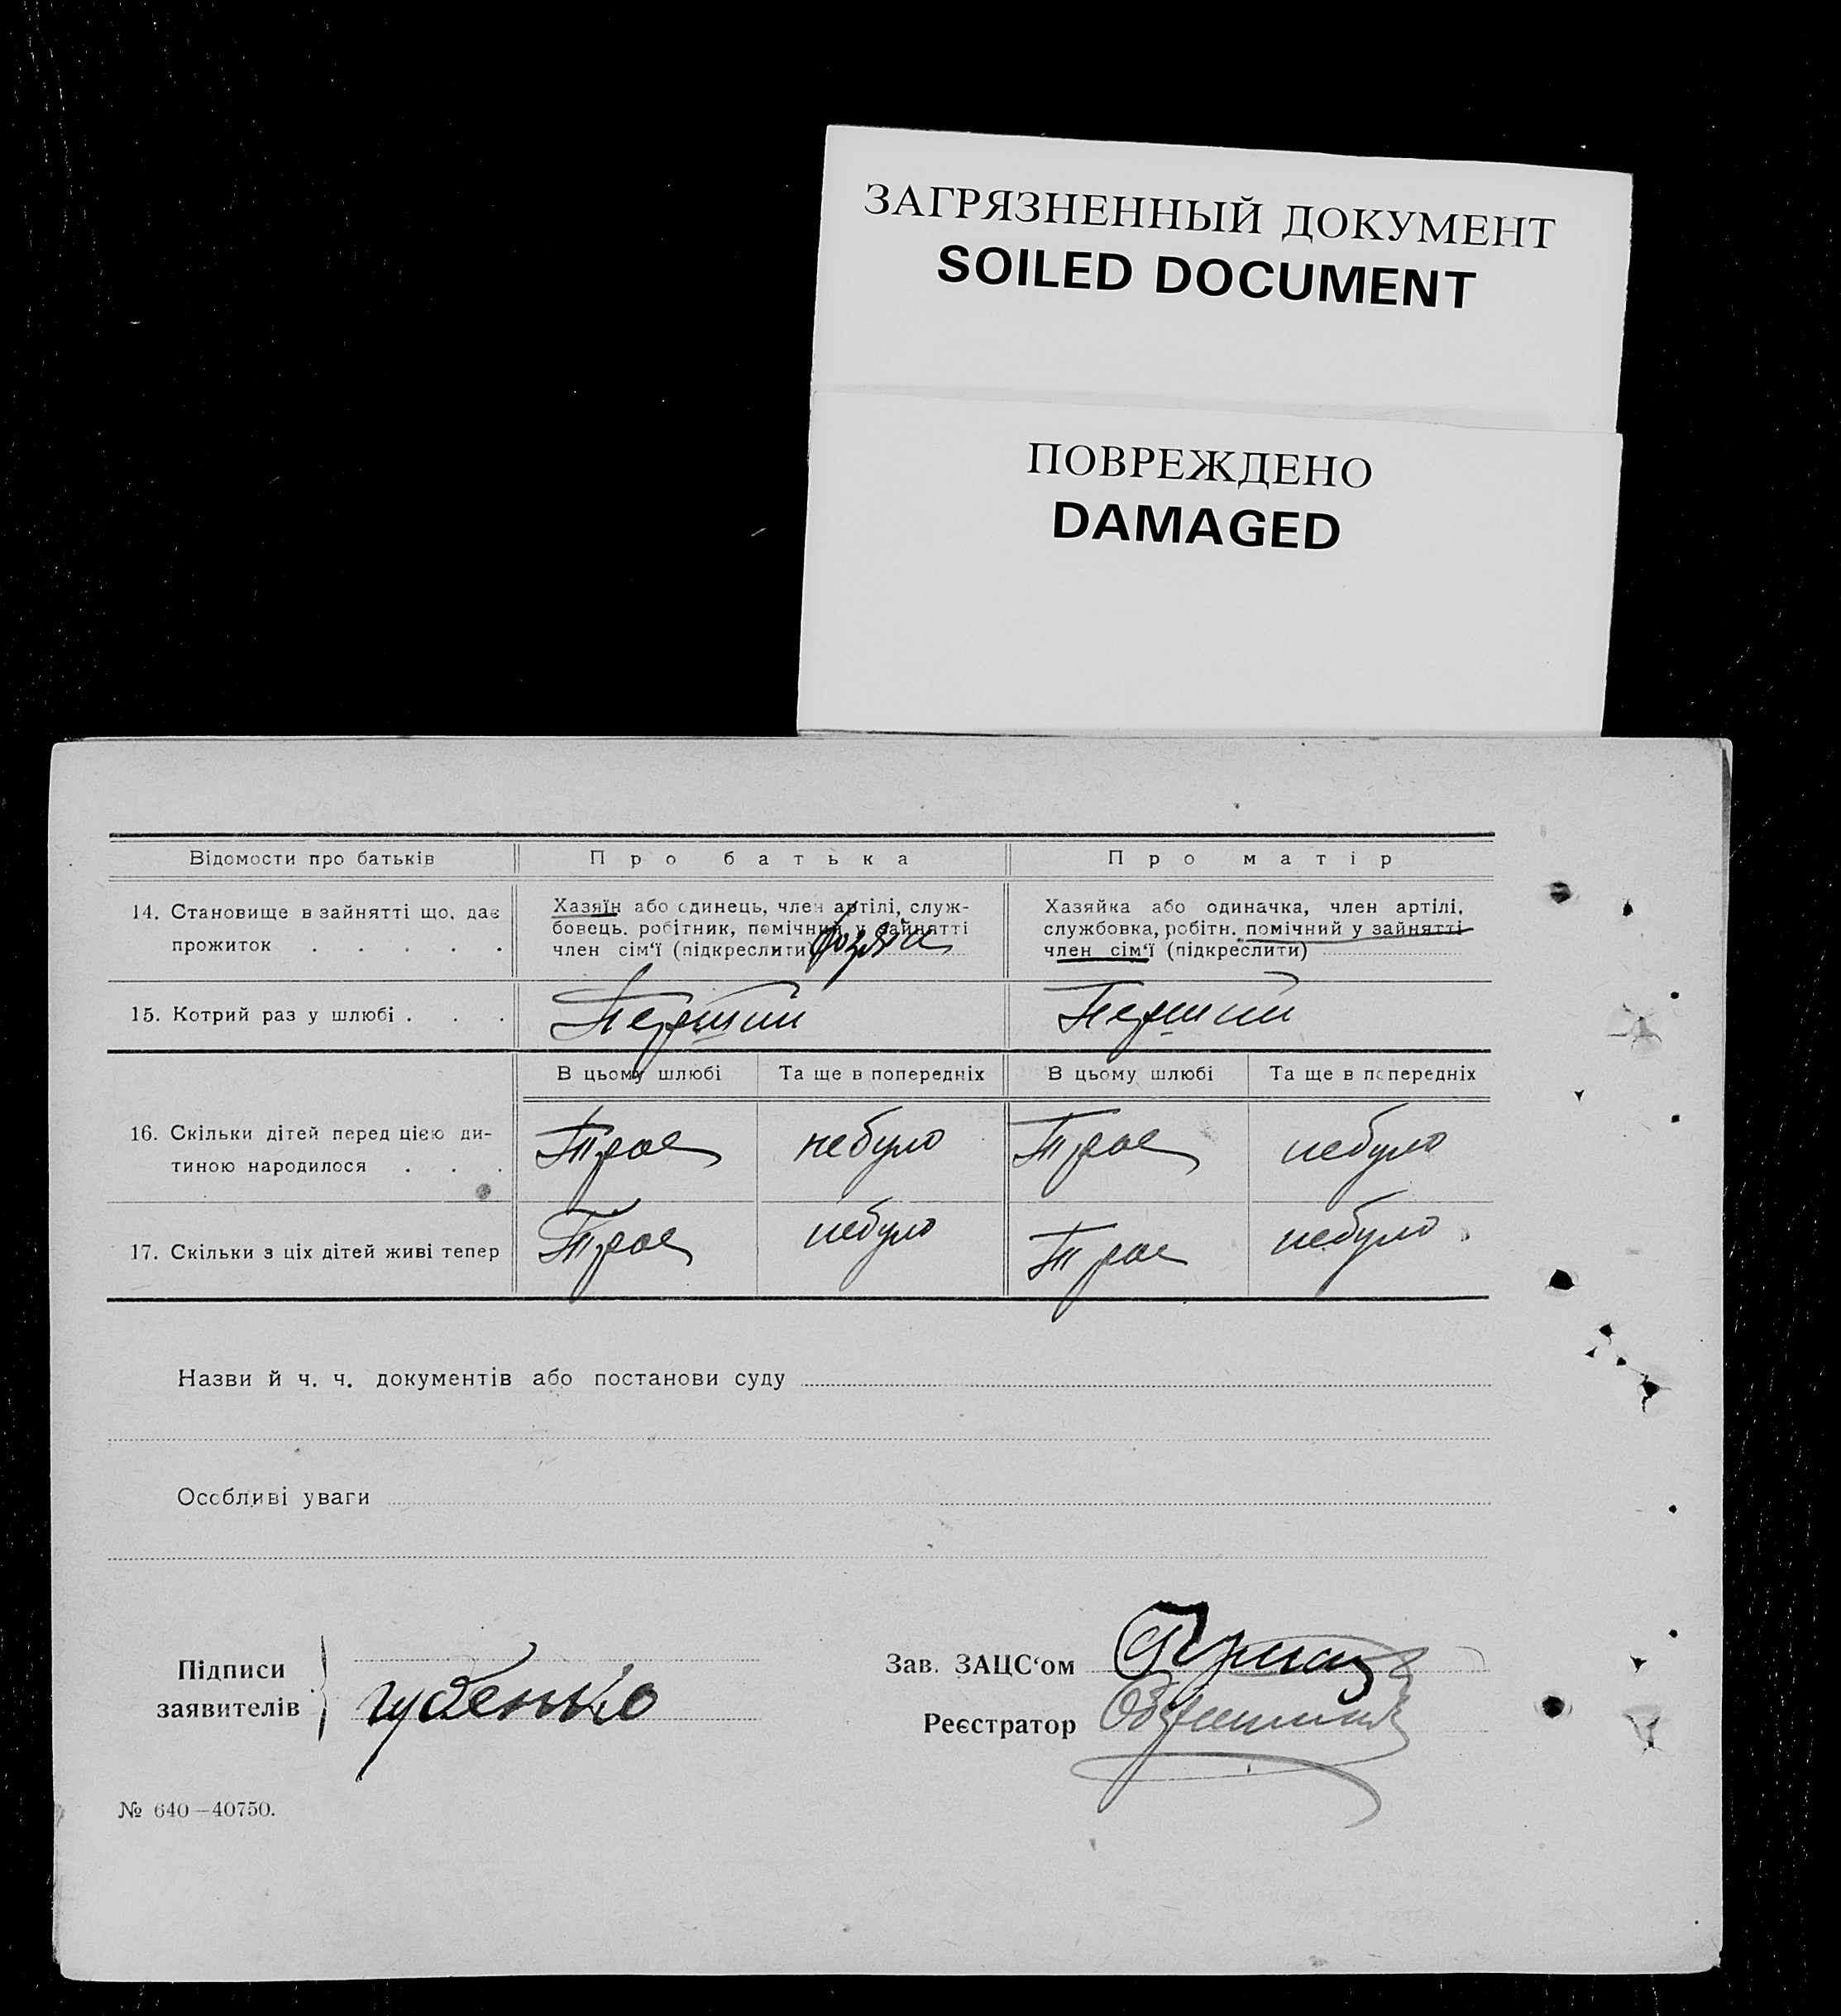 ЗАГРЯЗНЕННЫЙ ДОКУМЕНТ
SOILED DOCUMENT
ПОВРЕЖДЕНО
DAMAGED
Відомости про батьків Про батька Про матір
14. Становище в зайнятті що, дає прожиток . . . . .
Хазяїн або єдинець, член артілі, служ-
бовець. робітник, помічний у зайнятті
член сім'ї (підкреслити)
Хазяйка або одиначка, член артілі,
службовка, робітн. помічний у зайнятті
член сім'ї (підкреслити)
15. Котрий раз у шлюбі . . . Перший Перший
В цьому шлюбі Та ще в попередніх В цьому шлюбі Та ще в попередніх
16. Скільки дітей перед цією ди-
тиною народилося . . . Трое небуло Трое небуло
17. Скільки з ціх дітей живі тепер Трое небуло Трое небуло
Назви й ч. ч. документів або постанови суду
Особливі уваги
Підписи
заявителів губенко
Зав. ЗАЦС'ом
Реєстратор
№ 640—40750.